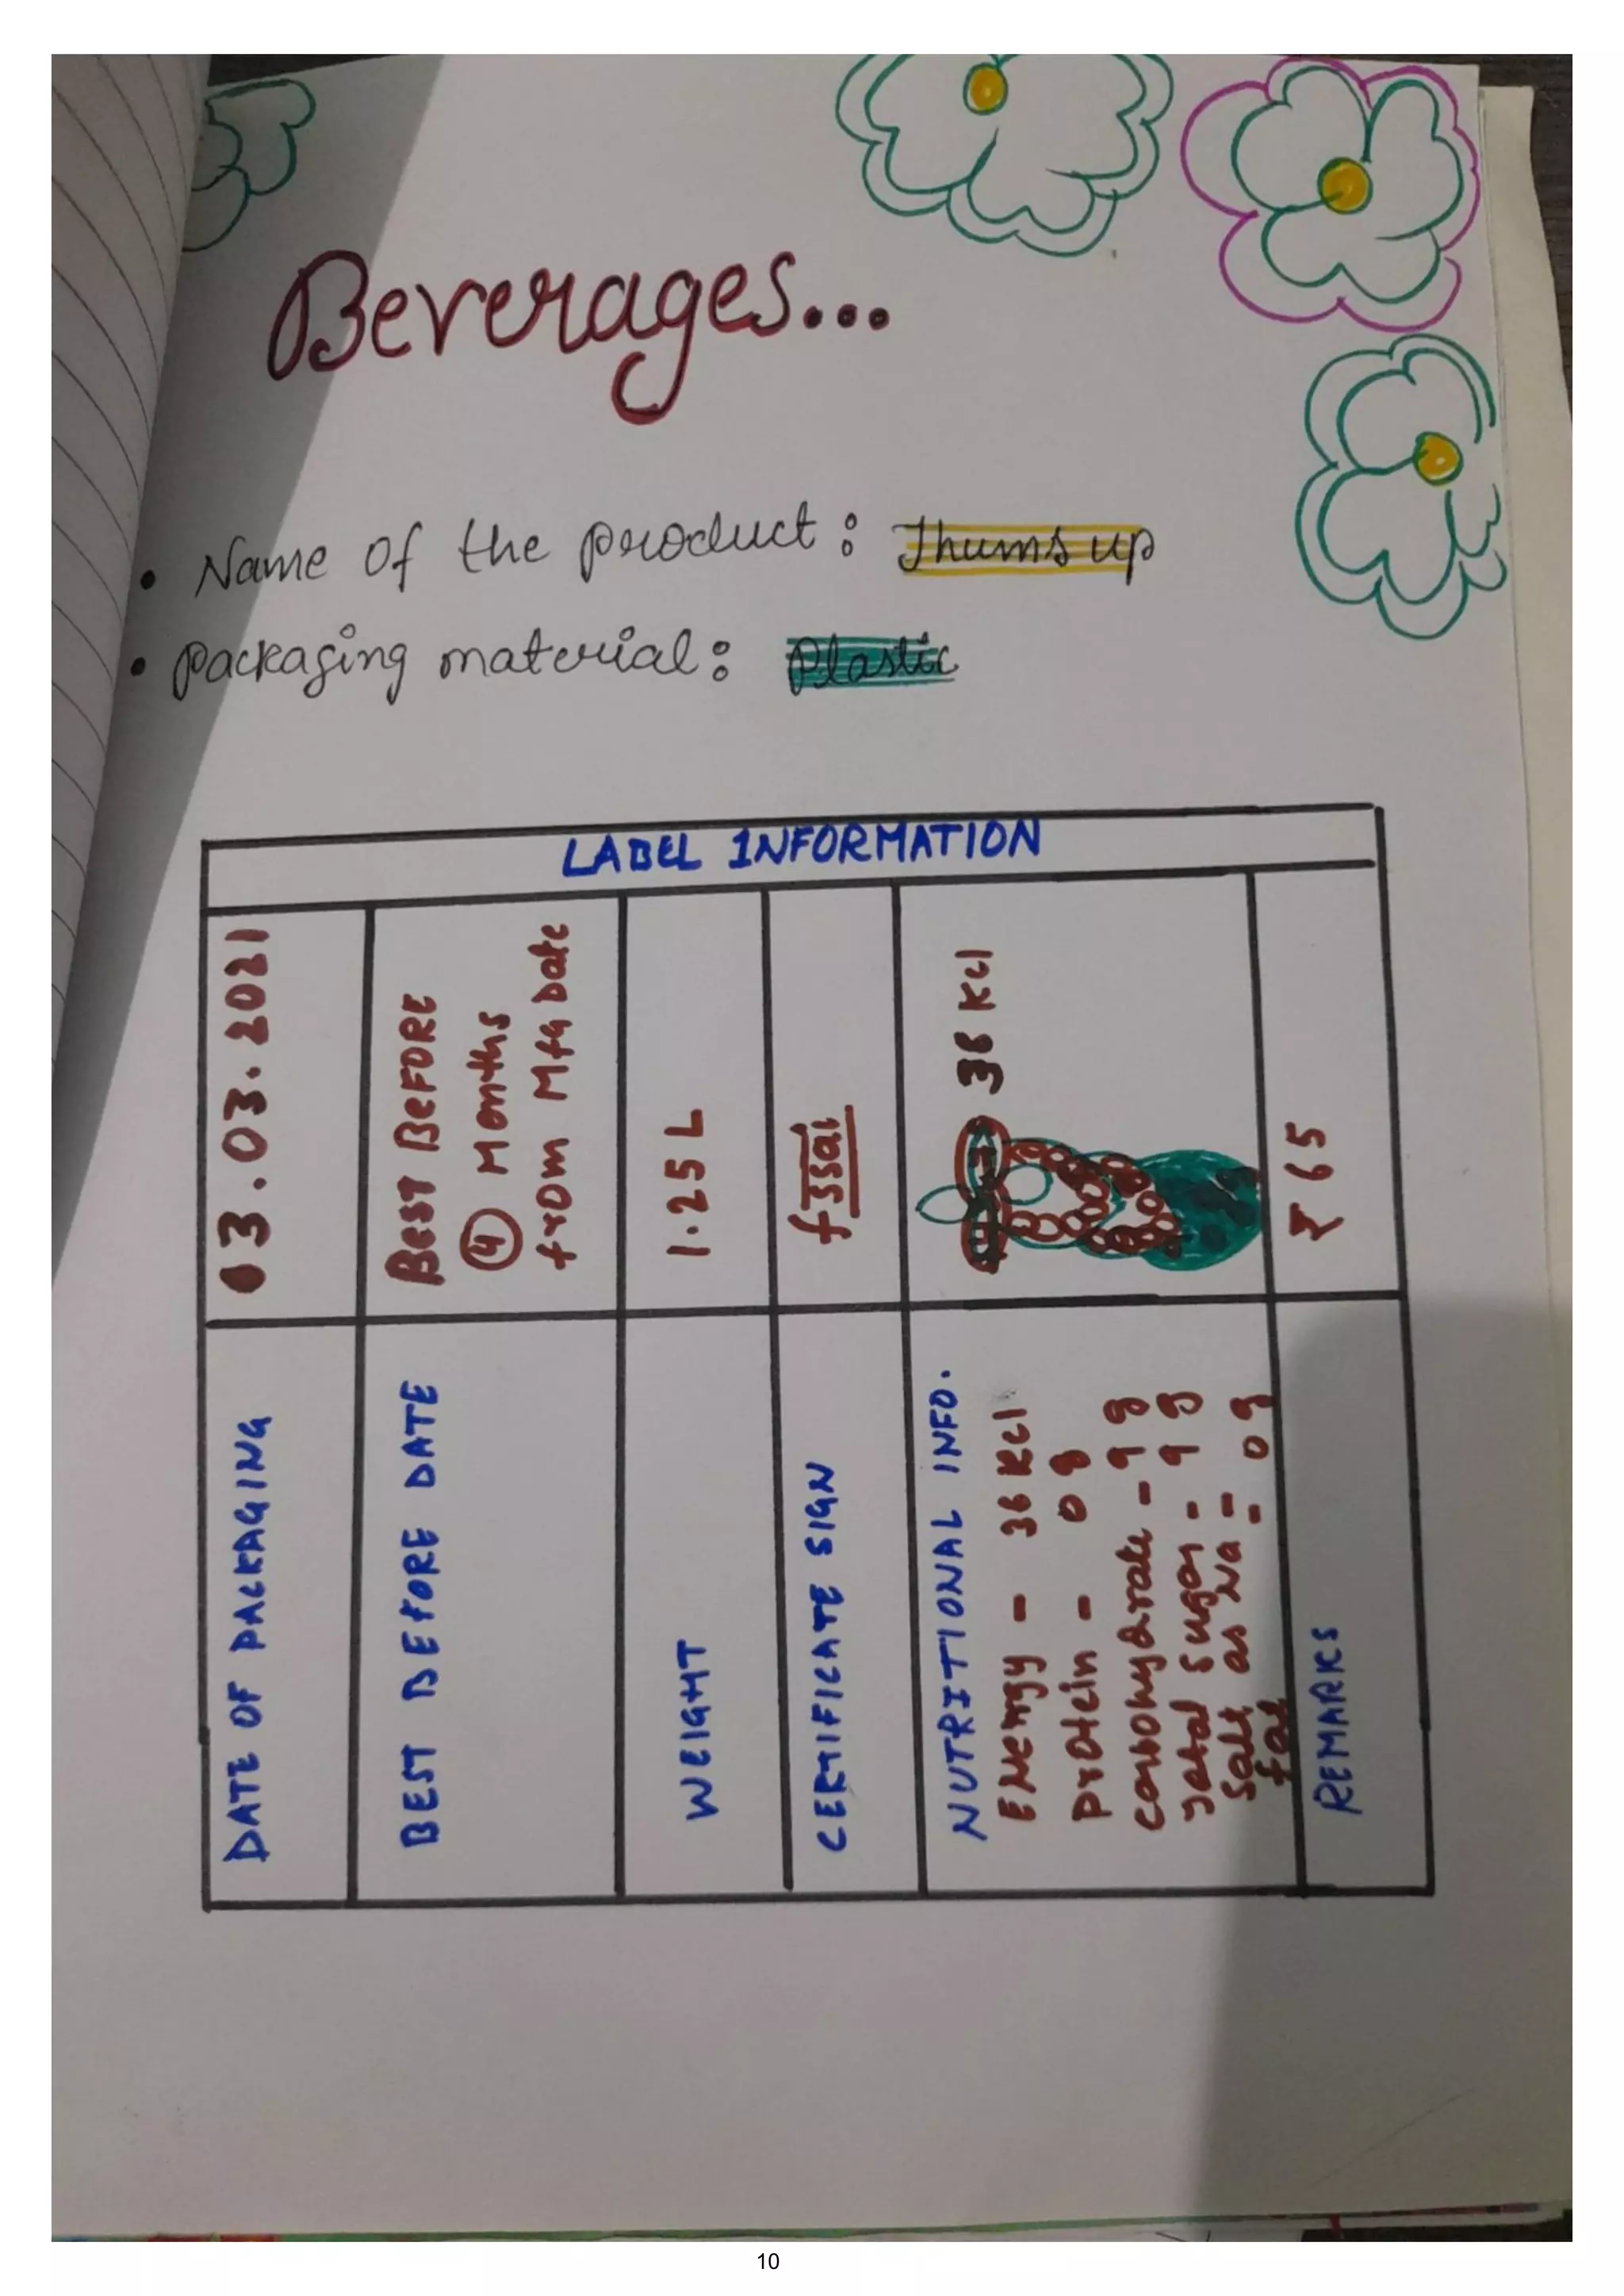 Beverages...
• Name of the product : Thums up
• Packaging material : Plastic
LABEL INFORMATION
DATE OF PACKAGING 03.03.2021
BEST BEFORE DATE BEST BEFORE
4 Months
from Mfg Date
WEIGHT 1.25 L
CERTIFICATE SIGN fssai
NUTRITIONAL INFO. 36 Kcl
Energy - 36 Kcl
Protein - 0 g
Carbohydrate - 9 g
Total Sugar - 9 g
Salt as Na -
fat - 0 g
REMARKS ₹ 65
10